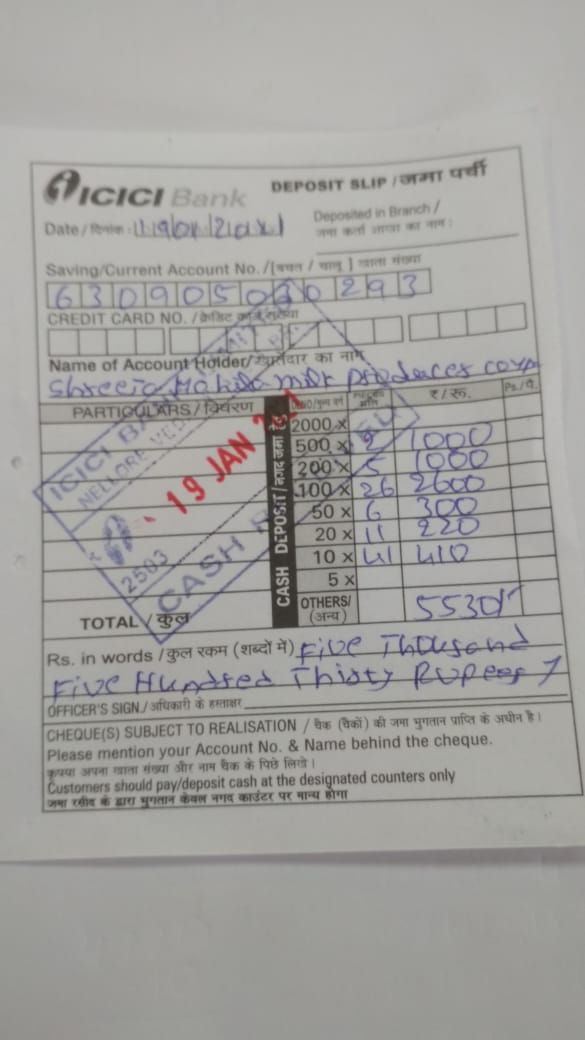 ICICI Bank
DEPOSIT SLIP / जमा पर्ची
Date / दिनांक :
Deposited in Branch /
जमा कर्ता शाखा का नाम :
Saving/Current Account No. /[बचत / चालू ] खाता संख्या
630905030293
CREDIT CARD NO. / क्रेडिट कार्ड संख्या
Name of Account Holder/खातेदार का नाम
Shreeja Mahila milk producer comp
PARTICULARS / विवरण
₹ / रू. Ps./पै.
CASH DEPOSIT / नगद जमा
2000 x
500 x 2 1000
200 x 5 1000
100 x 26 2600
50 x 6 300
20 x 11 220
10 x 41 410
5 x
OTHERS/
(अन्य)
TOTAL / कुल 5530/
ICICI BANK
NELLORE
19 JAN
2503
CASH
Rs. in words / कुल रकम (शब्दों में) Five Thousand
Five Hundred Thirty Rupees
OFFICER'S SIGN./ अधिकारी के हस्ताक्षर
CHEQUE(S) SUBJECT TO REALISATION / चैक (चैकों) की जमा भुगतान प्राप्ति के अधीन है।
Please mention your Account No. & Name behind the cheque.
कृपया अपना खाता संख्या और नाम चैक के पिछे लिखे।
Customers should pay/deposit cash at the designated counters only
जमा रसीद के द्वारा भुगतान केवल नगद काउंटर पर मान्य होगा